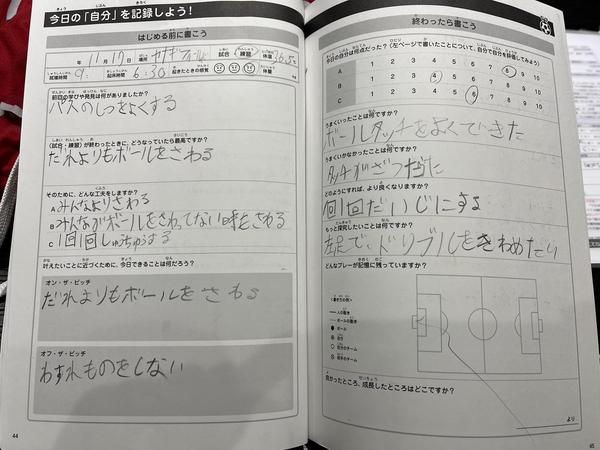 今日の「自分」を記録しよう！
はじめる前に書こう
年 11月17日 場所 試合 練習 体温 36.5
就寝時間 9: 起床時間 6:30 起きたときの感覚 体重
前回の学びや発見は何がありましたか？
パスのしつをよくする
（試合・練習）が終わったときに、どうなっていたら最高ですか？
だれよりもボールをさわる
そのために、どんな工夫をしますか？
A みんなよりさわる
B みんながボールをさわってない時もさわる
C 1回1回しゅちゅうする
叶えたいことに近づくために、今日できることは何だろう？
オン・ザ・ピッチ
だれよりもボールをさわる
オフ・ザ・ピッチ
わすれものをしない
44
終わったら書こう
今日の自分は何点だった？（左ページで書いたことについて、自分で自分を評価してみよう）
A 1 2 3 4 5 6 7 8 9 10
B 1 2 3 4 5 6 7 8 9 10
C 1 2 3 4 5 6 7 8 9 10
うまくいったことは何ですか？
ボールタッチをよくできた
うまくいかなかったことは何ですか？
タッチがざつだった
どのようにすれば、より良くなりますか？
1回1回だいじにする
もっと探究したいことは何ですか？
左足で、ドリブルをきわめたい
どんなプレーが記憶に残っていますか？
＜書き方の例＞
人の動き
ボールの動き
ボール
自分
自分のチーム
相手のチーム
良かったところ、成長したところはどこですか？
より
45